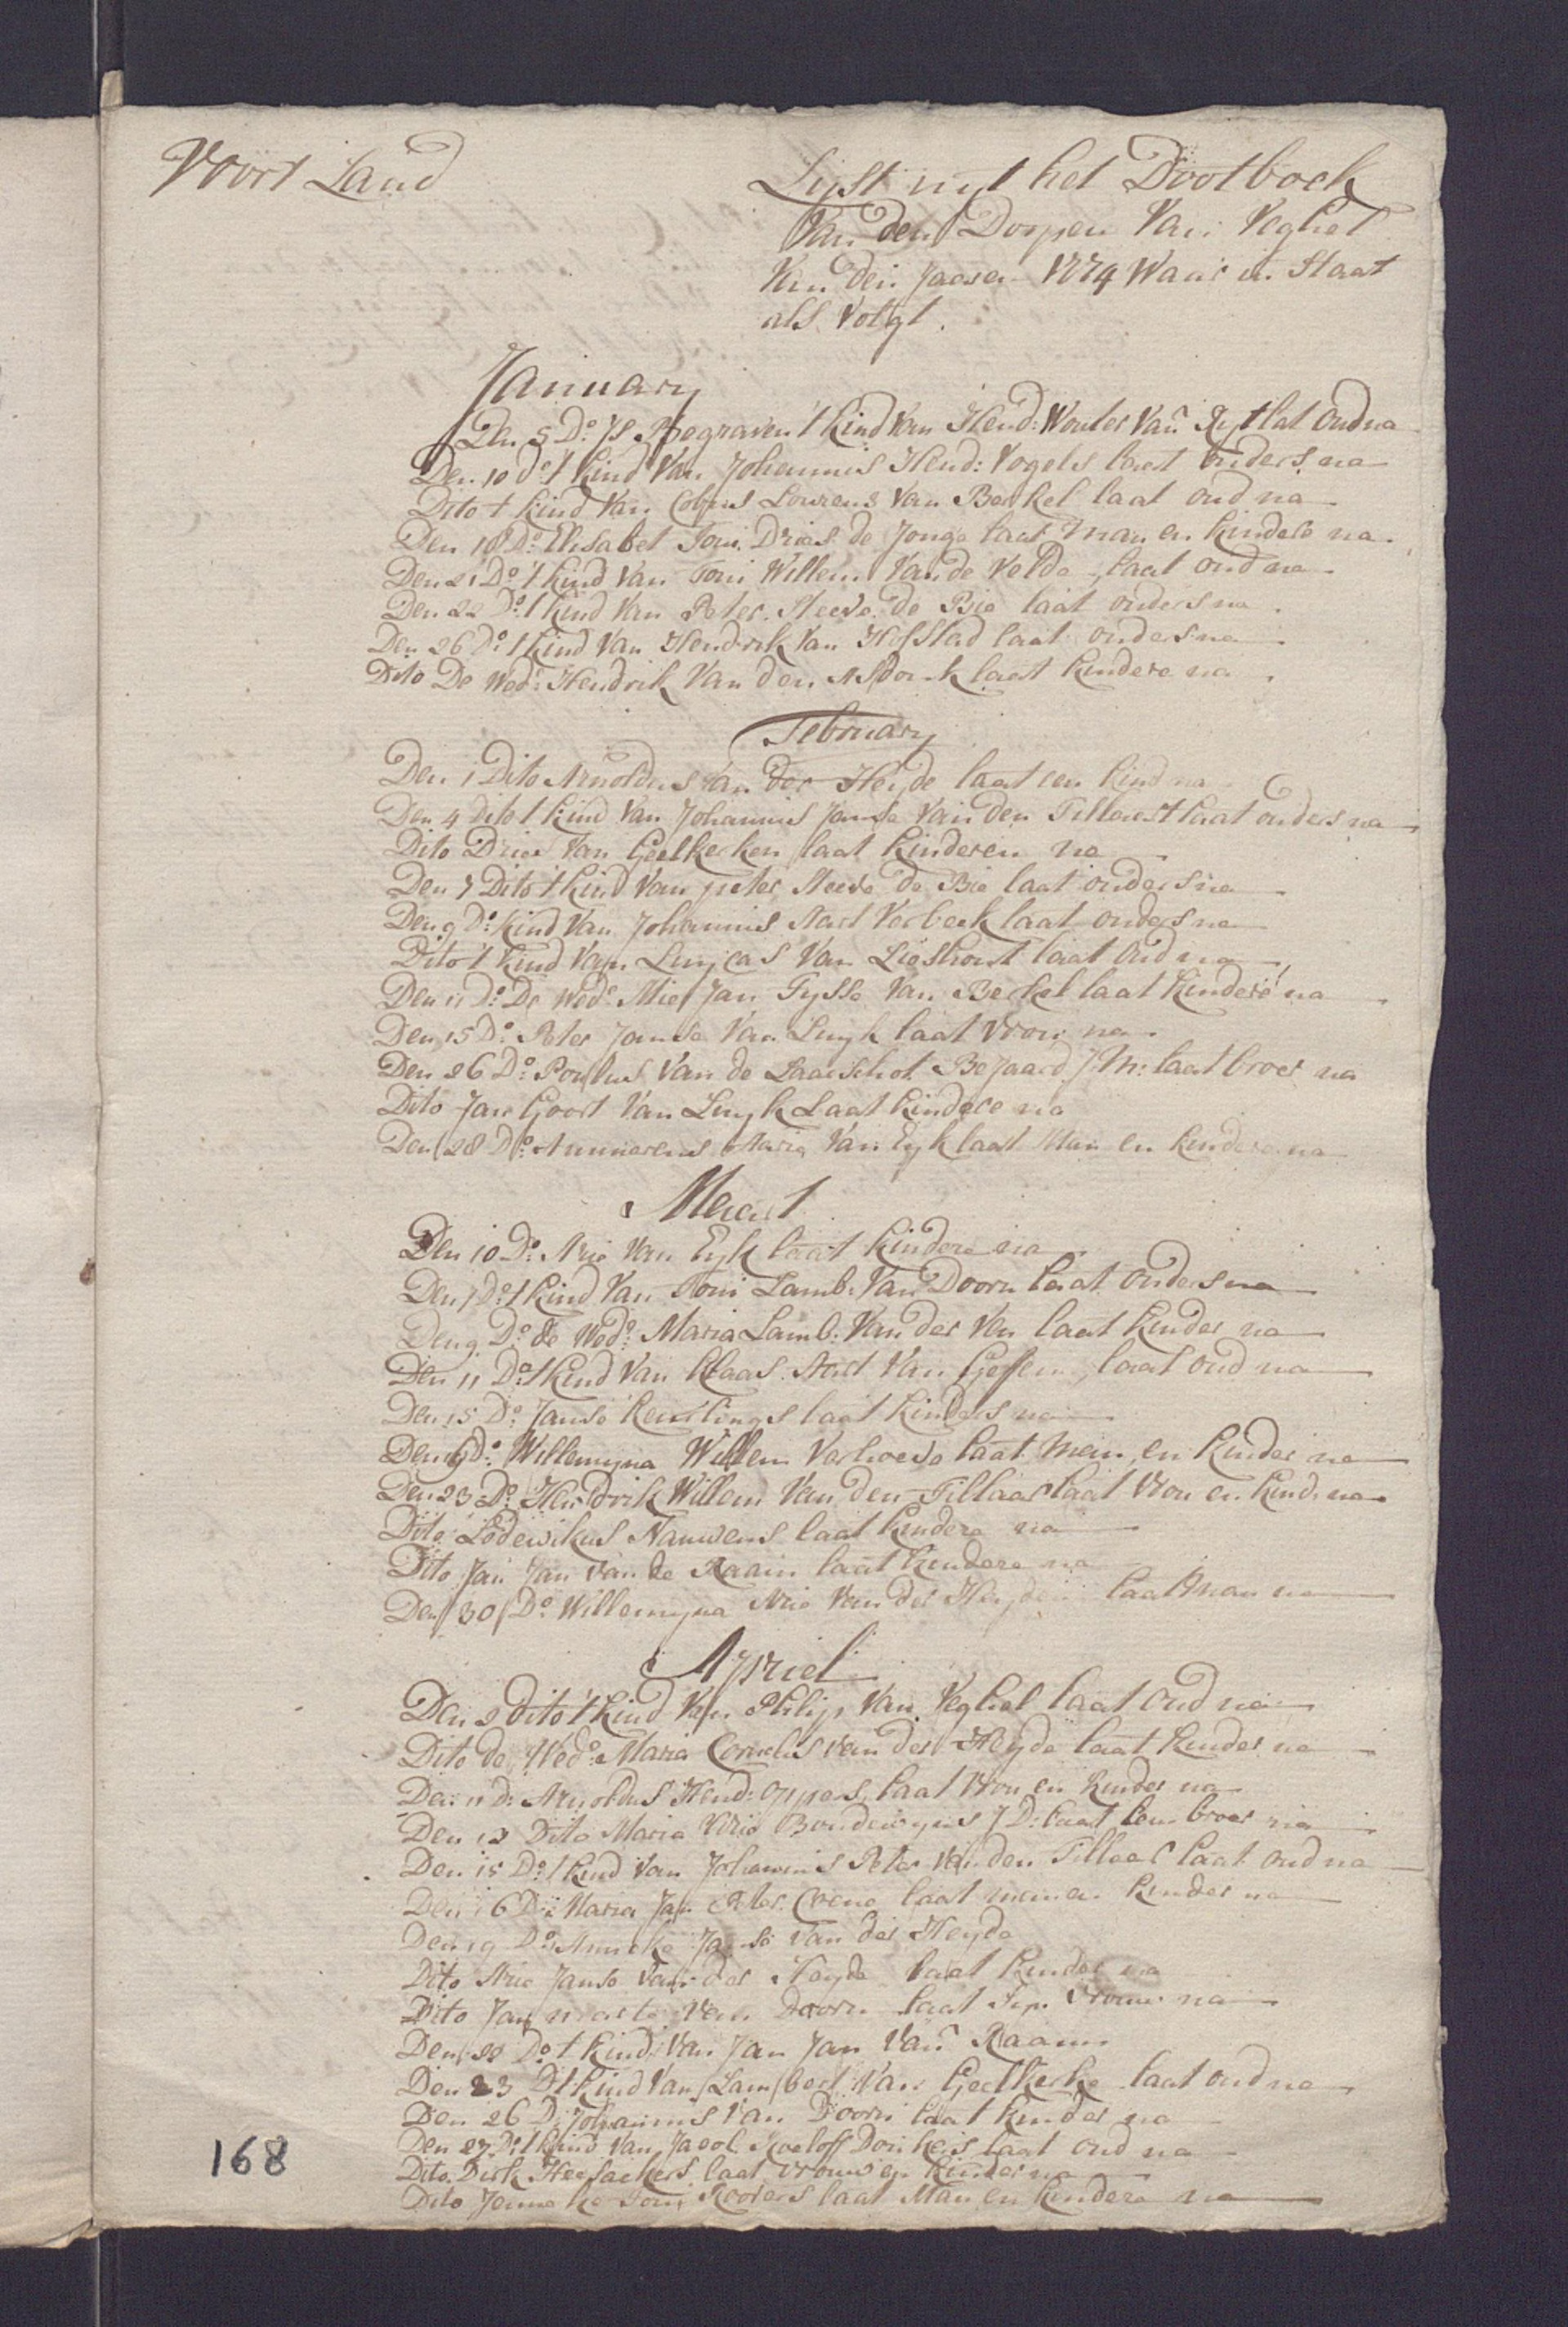 Voort Land
Lyst uyt het Dootboek
Van den Dorpen Van Veghel
Van den Jaeren 1774 Waar in Staat
als Volgt.
January
Den 5 Do: Is Begraven 't kind Van Hend: Wouter Van Ryt lat Oud na
Den 10 do 't kind Van Johannis Hend: Vogels laat ouders na
Dito 't kind Van Lourens Van Berkel laat oud na
Den 18 Do: Elisabet Toni Dries de Jonge laat man en kindere na.
Den 21 Do 't kind Van Toni Willem Van de Velde laat oud na
Den 22 Do: 't kind Van Peter Steeve de Bie laat ouders na.
Den 26 Do 't kind Van Hendrik Van Hofstad laat ouders na
Dito De Wede: Hendrik Van den Asdonk laat kindere na.
February
Den 1 Dito Arnoldus Van der Heyde laat een kind na
Den 4 dito 't kind Van Johannis Janse Van den Tillaert laat ouders na
Dito Dries Van Geelkerken laat kinderen na
Den 7 Dito 't kind Van peter Steeve de Bie laat ouders na
Den 9 Do: kind Van Johannis Aart Verbeek laat ouders na
Dito 't kind Van Luycas Van Lieshout laat Oud na
Den 11 Do: De Wede: Mie Jan Tysse Van Berkel laat kindere na
Den 15 Do: Peter Janse Van Luyk laat Vrou na.
Den 26 Do: Poulus Van de Laarschot Bejaard J:M: laat broer na
Dito Jan Goort Van Luyk Laat kindere na
Den 28 Do: Maria Van Eyk laat Man en kindere na
Meert
Den 10 Do: Arie Van Eyk laat kindere na
Den 7 Do: 't kind Van Toni Lamb: Van Doorn laat Ouders na
Den 9 Do: de Wede: Maria Lamb: Van der Ven laat kinder na
Den 11 Do 't kind Van Klaas Aart Van Geffen laat oud na
Den 15 Do: Janse laat kinders na
Den 16 do: Willemyna Willem Verhoeve laat Man en kinder na
Den 23 Do: Hendrik Willem Van den Tillaar laat Vrou en kind na
Dito Lodewikus Nauwens laat kindere na
Dito Jan Jan Van de Raam laat kindere na
Den 30 Do: Willemyna Arie Van der Heyden laat Man na
Apriel
Den 2 dito 't kind Van Philip Van Veghel laat Oud na
Dito de Wede: Maria Cornelis Van der Heyde laat kinder na
Den 11 D: Arnoldus Hend: Oppers laat Vrou en kinder na
Den 12 Dito Maria Boudewyns J D: laat broer na
Den 15 Do: 't kind Van Johannis Peter Van den Tillaar laat Oud na
Den 16 D: Maria Jan Peter laat man en kinder na
Den 19 Do: Anneke Janse Van der Heyde
Dito Arie Janse Van der Heyde laat kinder na
Dito Jan Van Doorn laat Vrouw na
Den 22 Do 't kind Van Jan Jan Van Raam
Den 23 D 't kind Van Lambert Van Geelkerke laat oud na
Den 26 D: Johannis Van Doorn laat kinder na
Den 27 D: 't kind Van Jacob Roeloff Donkers laat oud na
Dito Dirk Heesackers laat Vrouw en kinder na
Dito Jenneke Toni Rovers laat Man en kindere na
168